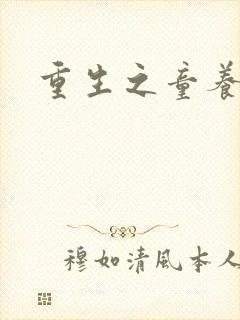 重生之童養
穆如清風本人